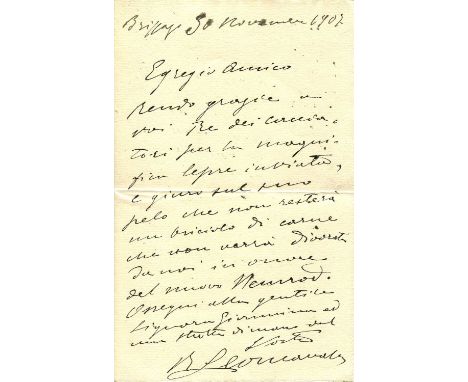 Brissago 30 Novembre 1907
Egregio Amico
Rendo grazie a
voi Re dei caccia-
tori per la magni-
fica lepre inviata,
e giuro sul suo
pelo che non resterà
un briciolo di carne
che non verrà divorata
da noi in onore
del nuovo Nemrod.
Ossequi alla gentile
Signora Giovannina ed
una stretta di mano dal
Vostro
R Leoncavallo